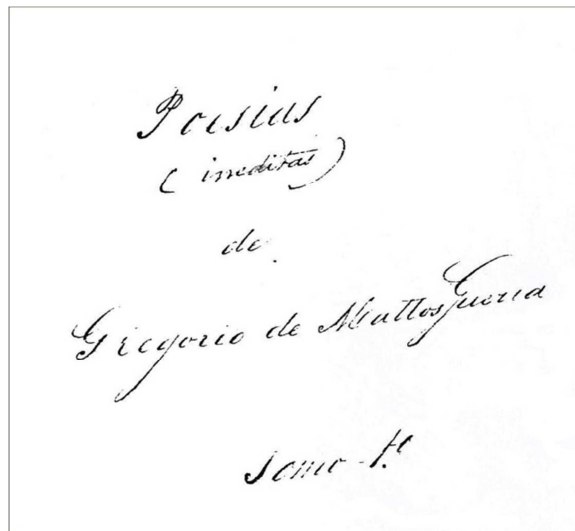 Poesias
(ineditas)
de
Gregorio de Mattos Guerra
Tomo 1.º